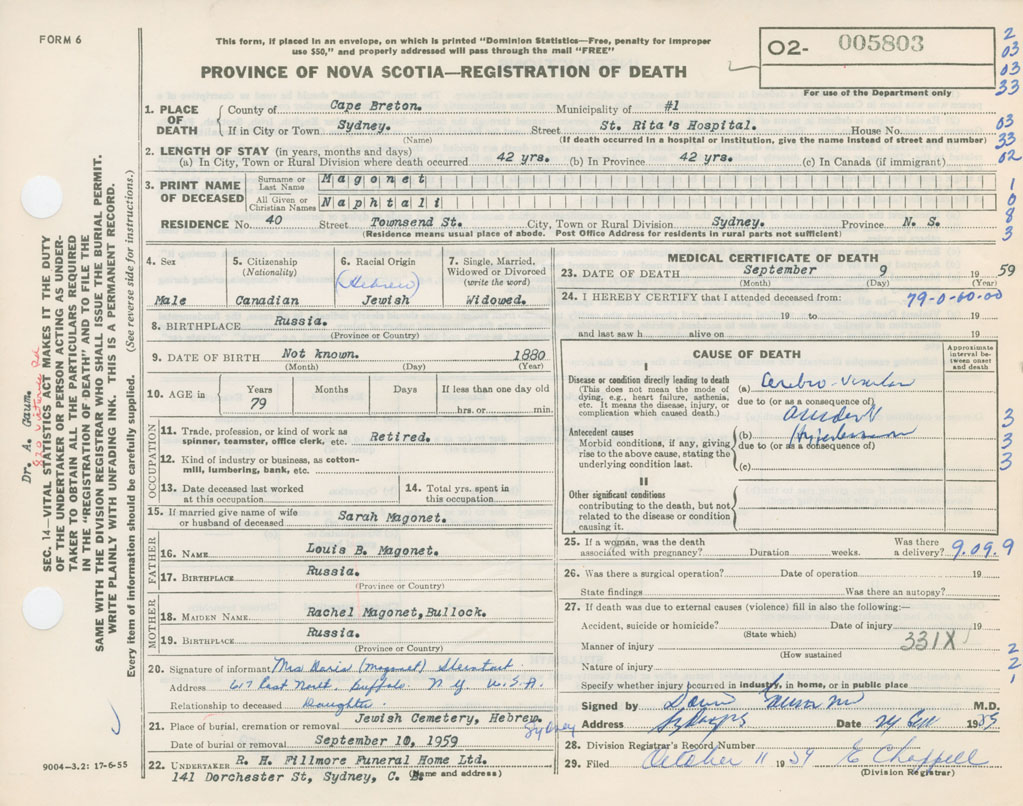 FORM 6
This form, if placed in an envelope, on which is printed "Dominion Statistics—Free, penalty for improper
use $50," and properly addressed will pass through the mail "FREE"
PROVINCE OF NOVA SCOTIA—REGISTRATION OF DEATH
O2- 005803
For use of the Department only
2
03
03
33
1. PLACE OF DEATH
County of Cape Breton. Municipality of #1
If in City or Town Sydney. Street St. Rita's Hospital. House No.
(Name) (If death occurred in a hospital or institution, give the name instead of street and number)
03
33
02
2. LENGTH OF STAY (in years, months and days)
(a) In City, Town or Rural Division where death occurred 42 yrs. (b) In Province 42 yrs. (c) In Canada (if immigrant)
3. PRINT NAME OF DECEASED
Surname or Last Name Magonet
All Given or Christian Names Naphtali
1
0
8
3
RESIDENCE No. 40 Street Townsend St. City, Town or Rural Division Sydney. Province N. S.
(Residence means usual place of abode. Post Office Address for residents in rural parts not sufficient)
4. Sex
Male
5. Citizenship
(Nationality)
Canadian
6. Racial Origin
(Hebrew)
Jewish
7. Single, Married,
Widowed or Divorced
(write the word)
Widowed.
8. BIRTHPLACE Russia.
(Province or Country)
9. DATE OF BIRTH Not known. 1880
(Month) (Day) (Year)
10. AGE in
Years Months Days If less than one day old
79 hrs. or min.
OCCUPATION
11. Trade, profession, or kind of work as
spinner, teamster, office clerk, etc. Retired.
12. Kind of industry or business, as cotton-
mill, lumbering, bank, etc.
13. Date deceased last worked
at this occupation
14. Total yrs. spent in
this occupation
15. If married give name of wife
or husband of deceased Sarah Magonet.
FATHER
16. NAME Louis B. Magonet.
17. BIRTHPLACE Russia.
(Province or Country)
MOTHER
18. MAIDEN NAME Rachel Magonet,Bullock.
19. BIRTHPLACE Russia.
(Province or Country)
20. Signature of informant Mrs Doris (Magonet)
Address 617 East North, Buffalo. N Y. U.S.A.
Relationship to deceased Daughter.
21. Place of burial, cremation or removal Jewish Cemetery, Hebrew. Sydney
Date of burial or removal September 10, 1959
22. UNDERTAKER R. H. Fillmore Funeral Home Ltd.
141 Dorchester St, Sydney, C. B.
(Name and address)
MEDICAL CERTIFICATE OF DEATH
23. DATE OF DEATH September 9 19 59
(Month) (Day) (Year)
24. I HEREBY CERTIFY that I attended deceased from: 79-0-60-00
19 to 19
and last saw h alive on 19
CAUSE OF DEATH
Approximate
interval be-
tween onset
and death
I
Disease or condition directly leading to death
(This does not mean the mode of
dying, e.g., heart failure, asthenia,
etc. It means the disease, injury, or
complication which caused death.)
(a) Cerebro-vascular
due to (or as a consequence of)
accident
Antecedent causes
Morbid conditions, if any, giving
rise to the above cause, stating the
underlying condition last.
(b) Hypertension
due to (or as a consequence of)
(c)
3
3
3
3
II
Other significant conditions
contributing to the death, but not
related to the disease or condition
causing it.
25. If a woman, was the death
associated with pregnancy? Duration weeks. Was there
a delivery? 9.09.9
26. Was there a surgical operation? Date of operation 19
State findings Was there an autopsy?
27. If death was due to external causes (violence) fill in also the following:—
Accident, suicide or homicide? Date of injury 19
(State which)
331X
Manner of injury
(How sustained
Nature of injury
2
2
1
Specify whether injury occurred in industry, in home, or in public place
Signed by M.D.
Address Sydney Date 1959
28. Division Registrar's Record Number
29. Filed October 11 1959 E Chappell
(Division Registrar)
Dr. A. Gaum.
SEC. 14—VITAL STATISTICS ACT MAKES IT THE DUTY
OF THE UNDERTAKER OR PERSON ACTING AS UNDER-
TAKER TO OBTAIN ALL THE PARTICULARS REQUIRED
IN THE "REGISTRATION OF DEATH" AND TO FILE THE
SAME WITH THE DIVISION REGISTRAR WHO SHALL ISSUE THE BURIAL PERMIT.
WRITE PLAINLY WITH UNFADING INK. THIS IS A PERMANENT RECORD.
Every item of information should be carefully supplied. (See reverse side for instructions.)
9004-3.2: 17-6-55